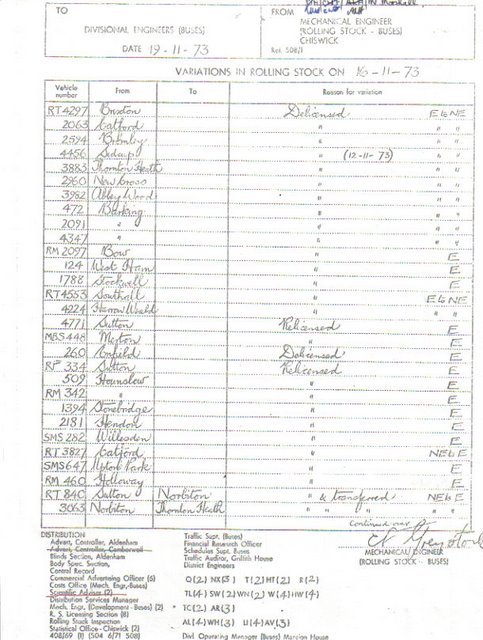 TO
FROM
DIVISIONAL ENGINEERS (BUSES)
MECHANICAL ENGINEER
(ROLLING STOCK - BUSES)
CHISWICK
DATE 19-11-73
Ref. 508/1
VARIATIONS IN ROLLING STOCK ON 16-11-73
Vehicle number From To Reason for variation
RT4297 Brixton Delicensed E&NE
2063 Catford " " "
2594 Bromley " " "
4456 Sidcup " (12-11-73) " "
3883 Thornton Heath " " "
2960 New Cross " " "
3982 Abbey Wood " " "
472 Barking " " "
2091 " " " "
4347 " " " "
RM 2097 Bow " E
124 West Ham " E
1788 Stockwell " E
RT4553 Southall " E&NE
4224 Harrow Weald " " "
4771 Sutton Relicensed E
MBS448 Merton " E
260 Enfield Delicensed E
RF 334 Sutton Relicensed E
509 Hounslow " E
RM 342 " " E
1394 Stonebridge " E
2181 Hendon " E
SMS 282 Willesden " E
RT 3827 Catford " NE&E
SMS647 Upton Park " E
RM 460 Holloway " E
RT 840 Sutton Norbiton " & transferred NE&E
3063 Norbiton Thornton Heath " " " E
continued over
MECHANICAL ENGINEER
(ROLLING STOCK - BUSES)
DISTRIBUTION
Advert. Controller, Aldenham
Advert. Controller, Camberwell
Blinds Section, Aldenham
Body Spec. Section,
Central Record
Commercial Advertising Officer (6)
Costs Office (Mech. Eng'r-Buses)
Scientific Advisor (2)
Distribution Services Manager
Mech. Engr. (Development-Buses) (2)
R. S. Licensing Section (8)
Rolling Stock Inspection
Statistical Office - Chiswick (2)
408/69 (1) (504 6/71 508)
Traffic Supt. (Buses)
Financial Research Officer
Schedules Supt. Buses
Traffic Auditor, Griffith House
District Engineers
Q(2) NX(3) T(2) HT(2) R(2)
TL(4) SW(2) WN(2) W(4) HW(4)
TC(2) AR(3)
AL(4) WH(3) U(4) AV(3)
Divl. Operating Manager (Buses) Mansion House